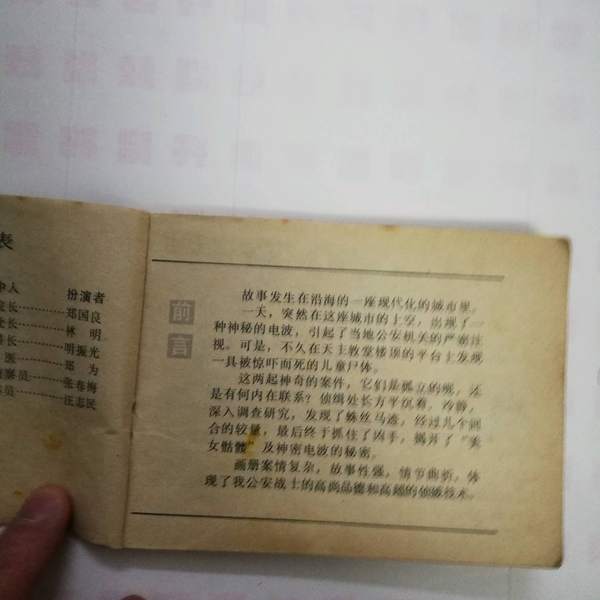 表
中人 扮演者
院长………郑国良
处长………林 明
长………明振光
医………郑 为
察员………张卷梅
员………汪志民
前言
故事发生在沿海的一座现代化的城市里。
一天，突然在这座城市的上空，出现了一
种神秘的电波，引起了当地公安机关的严密注
视。可是，不久在天主教堂楼顶的平台上发现
一具被惊吓而死的儿童尸体。
这两起神奇的案件，它们是孤立的呢，还
是有何内在联系？侦缉处长方平沉着、冷静，
深入调查研究，发现了蛛丝马迹，经过几个回
合的较量，最后终于抓住了凶手，揭开了“美
女骷髅”及神密电波的秘密。
画册案情复杂，故事性强，情节曲折，体
现了我公安战士的高尚品德和高超的侦破技术。